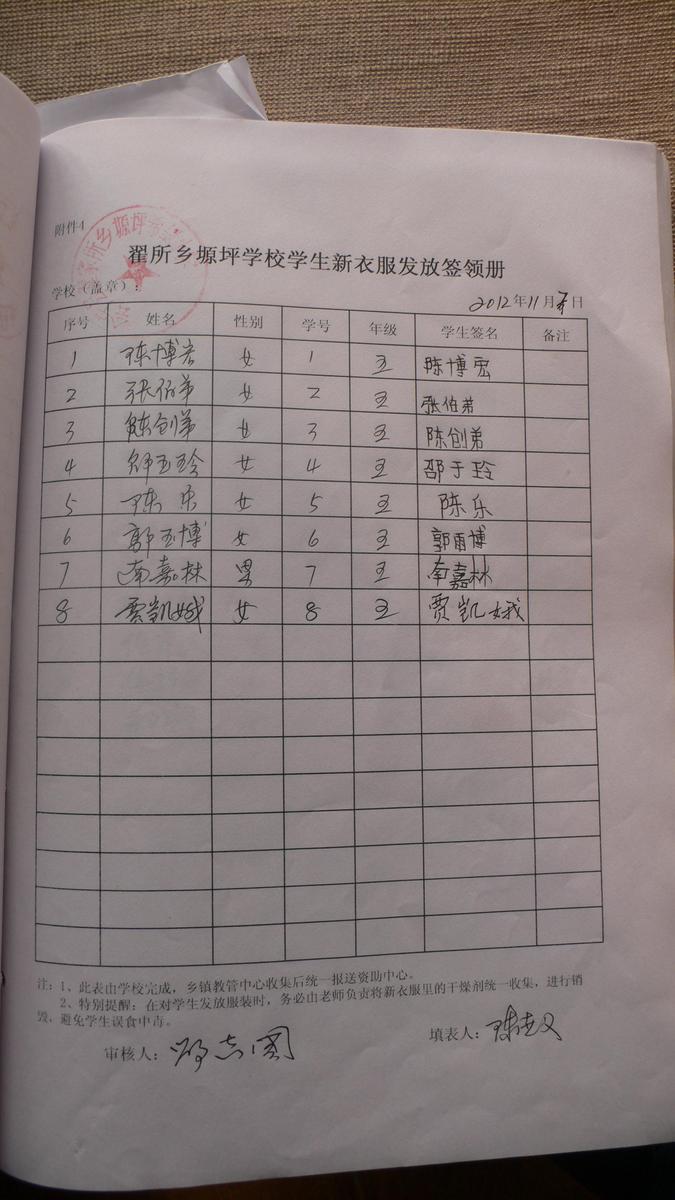 附件4
翟所乡塬坪学校学生新衣服发放签领册
学校（盖章）：
2012年11月 日
序号 姓名 性别 学号 年级 学生签名 备注
1 陈博宏 女 1 五 陈博宏
2 张伯弟 女 2 五 张伯弟
3 陈创弟 女 3 五 陈创弟
4 邵玉玲 女 4 五 邵于玲
5 陈乐 女 5 五 陈乐
6 郭玉博 女 6 五 郭雨博
7 南嘉林 男 7 五 南嘉林
8 贾凯娥 女 8 五 贾凯娥
注：1、此表由学校完成，乡镇教管中心收集后统一报送资助中心。
2、特别提醒：在对学生发放服装时，务必由老师负责将新衣服里的干燥剂统一收集，进行销
毁，避免学生误食中毒。
审核人：
填表人：